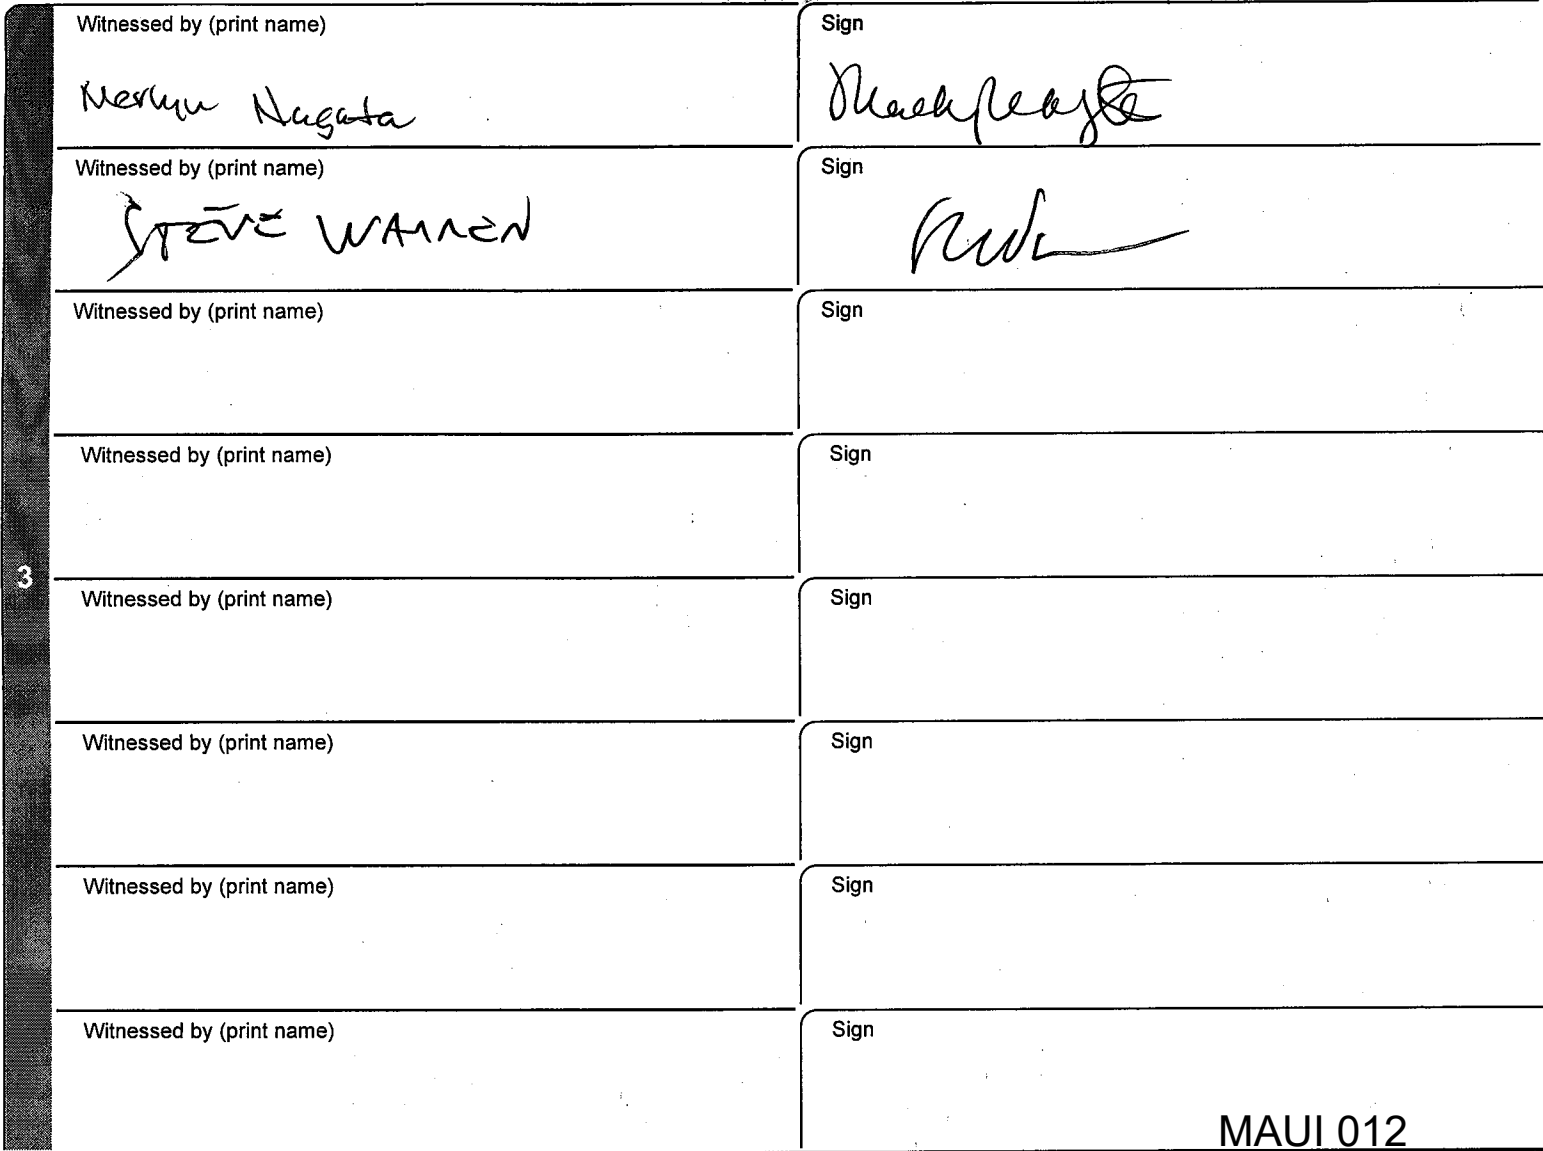 Witnessed by (print name) Sign
Merlyn Nagata
Witnessed by (print name) Sign
STEVE WARREN
Witnessed by (print name) Sign
Witnessed by (print name) Sign
3
Witnessed by (print name) Sign
Witnessed by (print name) Sign
Witnessed by (print name) Sign
Witnessed by (print name) Sign
MAUI 012